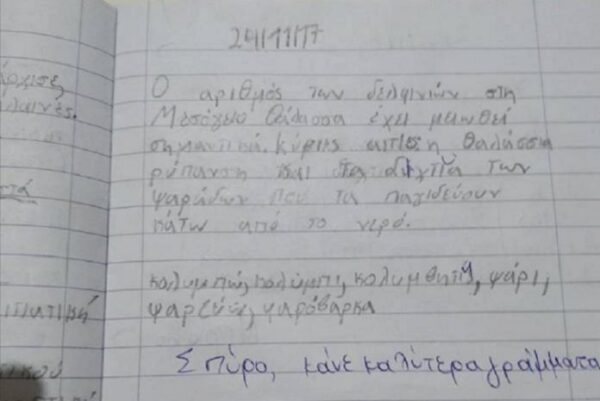 άρχισες
λαινές.
στά
24/11/17
Ο αριθμός των δελφινιών στη
Μεσόγειο θάλασσα έχει μειωθεί
σημαντικά. Κύριες αιτίες η θαλάσσια
ρύπανση και τα δίχτυα των
ψαράδων που τα παγιδεύουν
κάτω από το νερό.
κολυμπώ, κολύμπι, κολυμβητής, ψάρι,
ψαρεύω, ψαρόβαρκα
Σπύρο, κάνε καλύτερα γράμματα